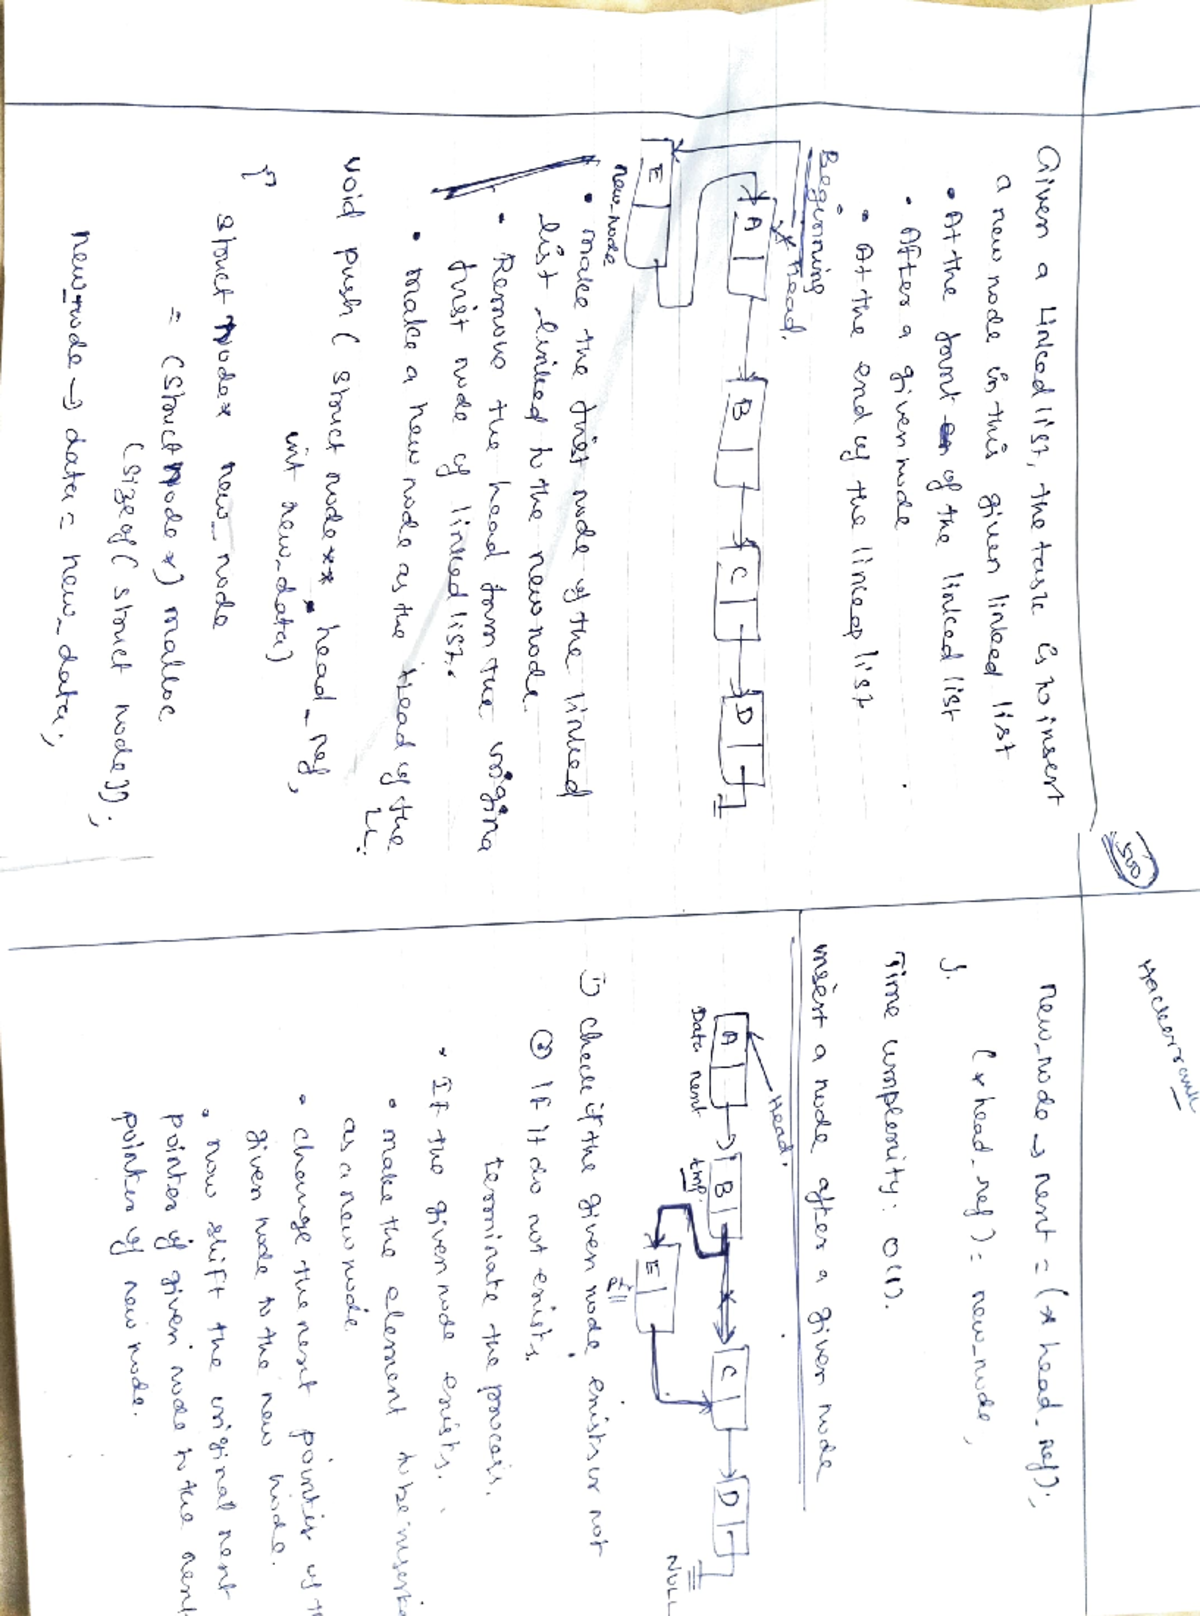 Given a Linked list, the task is to insert
a new node in this given linked list
• At the front of the linked list
• After a given node
• At the end of the linked list
Beginning
Head.
A B C D
E
new_node
• make the first node of the linked
list linked to the new node.
• Remove the head from the origina
first node of linked list.
• make a new node as the Head of the
LL.
void push( struct node** head_ref,
int new_data)
{
struct node* new_node
= (struct node*) malloc
(sizeof( struct node));
new_node → data = new_data;
500
Hackerrank
new_node → next = (*head_ref);
(*head_ref) = new_node;
}.
Time complexity: O(1).
insert a node after a given node
Head.
A B C D
Data next tmp.
E
NULL
1) check if the given node exists or not
② If it do not exists.
terminate the process.
• If the given node exists.
• make the element to be inserte
as a new node.
• change the next pointer of th
given node to the new node.
• now shift the original next
pointer of given node to the next
pointer of new node.